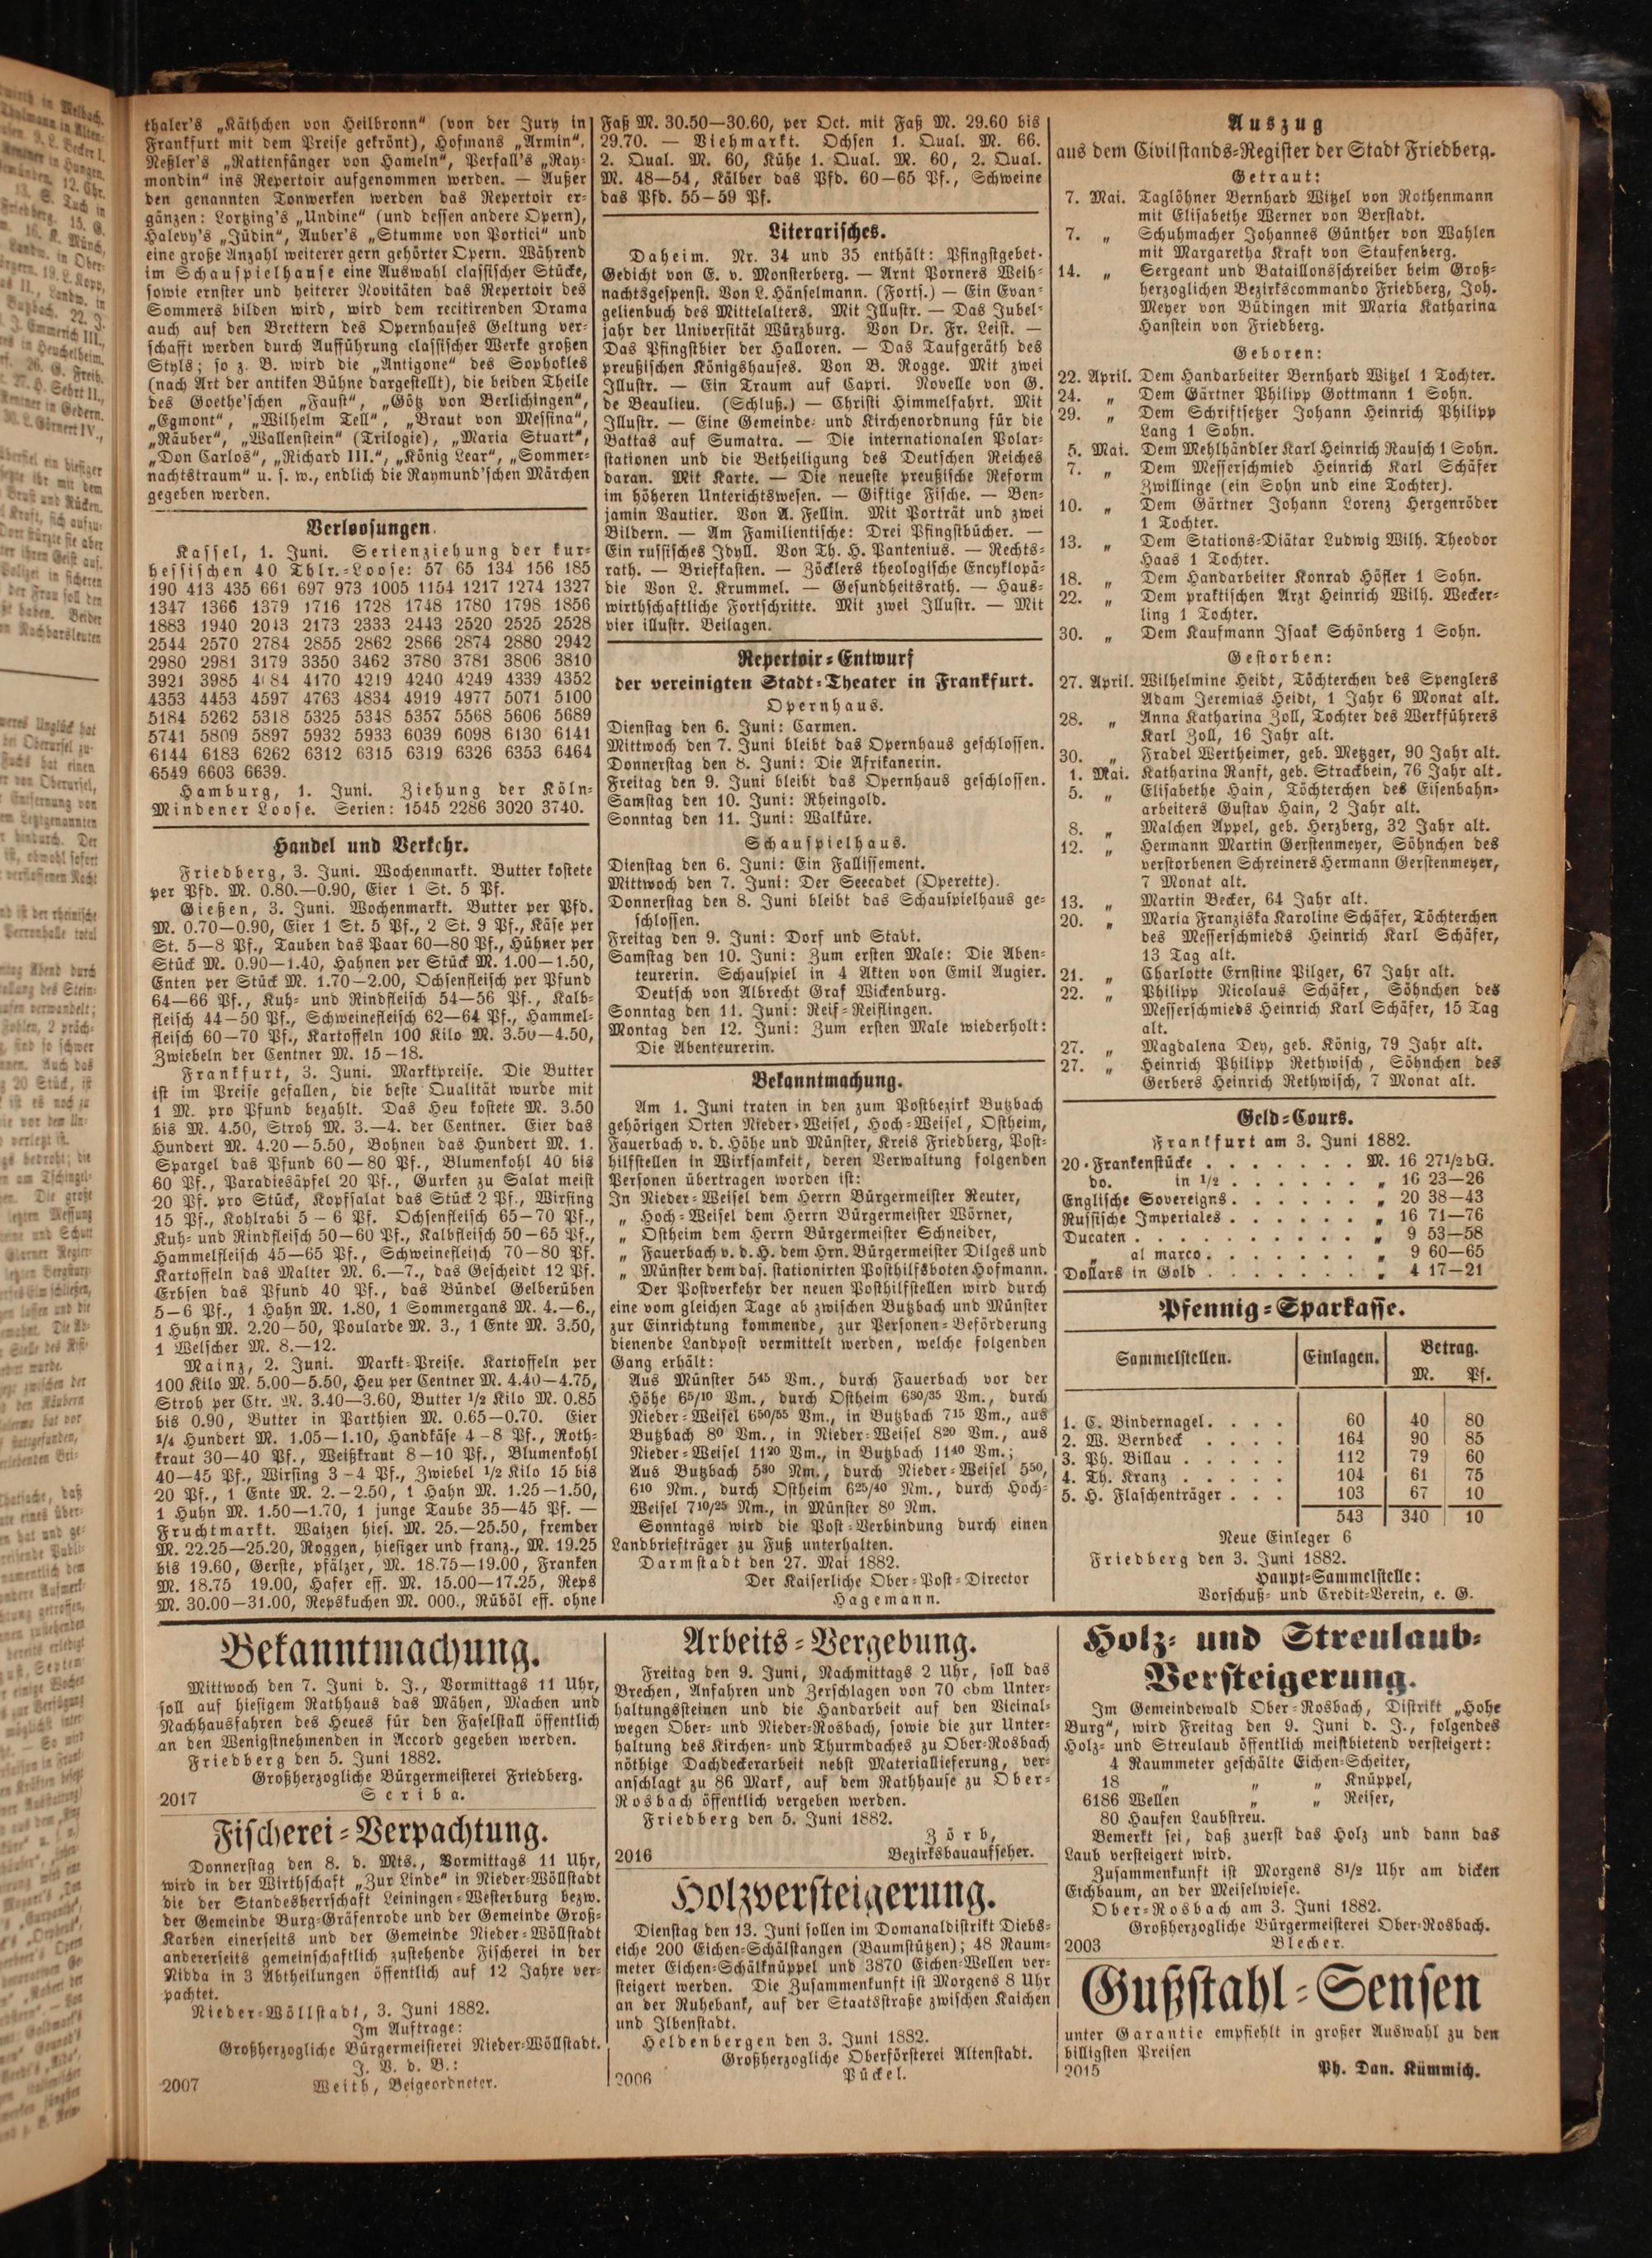 thaler's „Käthchen von Heilbronn“ (von der Jury in
Frankfurt mit dem Preise gekrönt), Hofmans „Armin“,
Neßler's „Rattenfänger von Hameln“, Perfall's „Ray-
mondin“ ins Repertoir aufgenommen werden. — Außer
den genannten Tonwerken werden das Repertoir er-
gänzen: Lortzing's „Undine“ (und dessen andere Opern),
Halevy's „Jüdin“, Auber's „Stumme von Portici“ und
eine große Anzahl weiterer gern gehörter Opern. Während
im Schauspielhause eine Auswahl classischer Stücke,
sowie ernster und heiterer Novitäten das Repertoir des
Sommers bilden wird, wird dem recitirenden Drama
auch auf den Brettern des Opernhauses Geltung ver-
schafft werden durch Aufführung classischer Werke großen
Styls; so z. B. wird die „Antigone“ des Sophokles
(nach Art der antiken Bühne dargestellt), die beiden Theile
des Goethe'schen „Faust“, „Götz von Berlichingen“,
„Egmont“, „Wilhelm Tell“, „Braut von Messina“,
„Räuber“, „Wallenstein“ (Trilogie), „Maria Stuart“,
„Don Carlos“, „Richard III.“, „König Lear“, „Sommer-
nachtstraum“ u. s. w., endlich die Raymund'schen Märchen
gegeben werden.
Verloosungen.
Kassel, 1. Juni. Serienziehung der kur-
hessischen 40 Thlr.-Loose: 57 65 134 156 185
190 413 435 661 697 973 1005 1154 1217 1274 1327
1347 1366 1379 1716 1728 1748 1780 1798 1856
1883 1940 2013 2173 2333 2443 2520 2525 2528
2544 2570 2784 2855 2862 2866 2874 2880 2942
2980 2981 3179 3350 3462 3780 3781 3806 3810
3921 3985 4184 4170 4219 4240 4249 4339 4352
4353 4453 4597 4763 4834 4919 4977 5071 5100
5184 5262 5318 5325 5348 5357 5568 5606 5689
5741 5809 5897 5932 5933 6039 6098 6130 6141
6144 6183 6262 6312 6315 6319 6326 6353 6464
6549 6603 6639.
Hamburg, 1. Juni. Ziehung der Köln-
Mindener Loose. Serien: 1545 2286 3020 3740.
Handel und Verkehr.
Friedberg, 3. Juni. Wochenmarkt. Butter kostete
per Pfd. M. 0.80.—0.90, Eier 1 St. 5 Pf.
Gießen, 3. Juni. Wochenmarkt. Butter per Pfd.
M. 0.70—0.90, Eier 1 St. 5 Pf., 2 St. 9 Pf., Käse per
St. 5—8 Pf., Tauben das Paar 60—80 Pf., Hühner per
Stück M. 0.90—1.40, Hahnen per Stück M. 1.00—1.50,
Enten per Stück M. 1.70—2.00, Ochsenfleisch per Pfund
64—66 Pf., Kuh- und Rindfleisch 54—56 Pf., Kalb-
fleisch 44—50 Pf., Schweinefleisch 62—64 Pf., Hammel-
fleisch 60—70 Pf., Kartoffeln 100 Kilo M. 3.50—4.50,
Zwiebeln der Centner M. 15—18.
Frankfurt, 3. Juni. Marktpreise. Die Butter
ist im Preise gefallen, die beste Qualität wurde mit
1 M. pro Pfund bezahlt. Das Heu kostete M. 3.50
bis M. 4.50, Stroh M. 3.—4. der Centner. Eier das
Hundert M. 4.20—5.50, Bohnen das Hundert M. 1.
Spargel das Pfund 60—80 Pf., Blumenkohl 40 bis
60 Pf., Paradiesäpfel 20 Pf., Gurken zu Salat meist
20 Pf. pro Stück, Kopfsalat das Stück 2 Pf., Wirsing
15 Pf., Kohlrabi 5—6 Pf. Ochsenfleisch 65—70 Pf.,
Kuh- und Rindfleisch 50—60 Pf., Kalbfleisch 50—65 Pf.,
Hammelfleisch 45—65 Pf., Schweinefleisch 70—80 Pf.
Kartoffeln das Malter M. 6.—7., das Gescheidt 12 Pf.
Erbsen das Pfund 40 Pf., das Bündel Gelberüben
5—6 Pf., 1 Hahn M. 1.80, 1 Sommergans M. 4.—6.,
1 Huhn M. 2.20—50, Poularde M. 3., 1 Ente M. 3.50,
1 Welscher M. 8.—12.
Mainz, 2. Juni. Markt-Preise. Kartoffeln per
100 Kilo M. 5.00—5.50, Heu per Centner M. 4.40—4.75,
Stroh per Ctr. M. 3.40—3.60, Butter 1/2 Kilo M. 0.85
bis 0.90, Butter in Parthien M. 0.65—0.70. Eier
1/4 Hundert M. 1.05—1.10, Handkäse 4—8 Pf., Roth-
kraut 30—40 Pf., Weißkraut 8—10 Pf., Blumenkohl
40—45 Pf., Wirsing 3—4 Pf., Zwiebel 1/2 Kilo 15 bis
20 Pf., 1 Ente M. 2.—2.50, 1 Hahn M. 1.25—1.50,
1 Huhn M. 1.50—1.70, 1 junge Taube 35—45 Pf. —
Fruchtmarkt. Waizen hies. M. 25.—25.50, fremder
M. 22.25—25.20, Roggen, hiesiger und franz., M. 19.25
bis 19.60, Gerste, pfälzer, M. 18.75—19.00, Franken
M. 18.75 19.00, Hafer eff. M. 15.00—17.25, Reps
M. 30.00—31.00, Repskuchen M. 000., Rüböl eff. ohne
Faß M. 30.50—30.60, per Oct. mit Faß M. 29.60 bis
29.70. — Viehmarkt. Ochsen 1. Qual. M. 66.
2. Qual. M. 60, Kühe 1. Qual. M. 60, 2. Qual.
M. 48—54, Kälber das Pfd. 60—65 Pf., Schweine
das Pfd. 55—59 Pf.
Literarisches.
Daheim. Nr. 34 und 35 enthält: Pfingstgebet.
Gedicht von E. v. Monsterberg. — Arnt Porners Weih-
nachtsgespenst. Von L. Hänselmann. (Forts.) — Ein Evan-
gelienbuch des Mittelalters. Mit Illustr. — Das Jubel-
jahr der Universität Würzburg. Von Dr. Fr. Leist. —
Das Pfingstbier der Halloren. — Das Taufgeräth des
preußischen Königshauses. Von B. Rogge. Mit zwei
Illustr. — Ein Traum auf Capri. Novelle von G.
de Beaulieu. (Schluß.) — Christi Himmelfahrt. Mit
Illustr. — Eine Gemeinde- und Kirchenordnung für die
Battas auf Sumatra. — Die internationalen Polar-
stationen und die Betheiligung des Deutschen Reiches
daran. Mit Karte. — Die neueste preußische Reform
im höheren Unterichtswesen. — Giftige Fische. — Ben-
jamin Vautier. Von A. Fellin. Mit Porträt und zwei
Bildern. — Am Familientische: Drei Pfingstbücher. —
Ein russisches Idyll. Von Th. H. Pantenius. — Rechts-
rath. — Briefkasten. — Zöcklers theologische Encyklopä-
die Von L. Krummel. — Gesundheitsrath. — Haus-
wirthschaftliche Fortschritte. Mit zwei Illustr. — Mit
vier illustr. Beilagen.
Repertoir-Entwurf
der vereinigten Stadt-Theater in Frankfurt.
Opernhaus.
Dienstag den 6. Juni: Carmen.
Mittwoch den 7. Juni bleibt das Opernhaus geschlossen.
Donnerstag den 8. Juni: Die Afrikanerin.
Freitag den 9. Juni bleibt das Opernhaus geschlossen.
Samstag den 10. Juni: Rheingold.
Sonntag den 11. Juni: Walküre.
Schauspielhaus.
Dienstag den 6. Juni: Ein Fallissement.
Mittwoch den 7. Juni: Der Seecadet (Operette).
Donnerstag den 8. Juni bleibt das Schauspielhaus ge-
schlossen.
Freitag den 9. Juni: Dorf und Stadt.
Samstag den 10. Juni: Zum ersten Male: Die Aben-
teurerin. Schauspiel in 4 Akten von Emil Augier.
Deutsch von Albrecht Graf Wickenburg.
Sonntag den 11. Juni: Reif-Reiflingen.
Montag den 12. Juni: Zum ersten Male wiederholt:
Die Abenteurerin.
Bekanntmachung.
Am 1. Juni traten in den zum Postbezirk Butzbach
gehörigen Orten Nieder-Weisel, Hoch-Weisel, Ostheim,
Fauerbach v. d. Höhe und Münster, Kreis Friedberg, Post-
hilfstellen in Wirksamkeit, deren Verwaltung folgenden
Personen übertragen worden ist:
In Nieder-Weisel dem Herrn Bürgermeister Reuter,
„ Hoch-Weisel dem Herrn Bürgermeister Wörner,
„ Ostheim dem Herrn Bürgermeister Schneider,
„ Fauerbach v. d. H. dem Hrn. Bürgermeister Dilges und
„ Münster dem das. stationirten Posthilfsboten Hofmann.
Der Postverkehr der neuen Posthilfstellen wird durch
eine vom gleichen Tage ab zwischen Butzbach und Münster
zur Einrichtung kommende, zur Personen-Beförderung
dienende Landpost vermittelt werden, welche folgenden
Gang erhält:
Aus Münster 545 Vm., durch Fauerbach vor der
Höhe 65/10 Vm., durch Ostheim 630/35 Vm., durch
Nieder-Weisel 650/55 Vm., in Butzbach 715 Vm., aus
Butzbach 80 Vm., in Nieder-Weisel 820 Vm., aus
Nieder-Weisel 1120 Vm., in Butzbach 1140 Vm.;
Aus Butzbach 530 Nm., durch Nieder-Weisel 550,
610 Nm., durch Ostheim 625/40 Nm., durch Hoch-
Weisel 710/25 Nm., in Münster 80 Nm.
Sonntags wird die Post-Verbindung durch einen
Landbriefträger zu Fuß unterhalten.
Darmstadt den 27. Mai 1882.
Der Kaiserliche Ober-Post-Director
Hagemann.
Auszug
aus dem Civilstands-Register der Stadt Friedberg.
Getraut:
7. Mai. Taglöhner Bernhard Witzel von Rothenmann
mit Elisabethe Werner von Berstadt.
7. „ Schuhmacher Johannes Günther von Wahlen
mit Margaretha Kraft von Staufenberg.
14. „ Sergeant und Bataillonsschreiber beim Groß-
herzoglichen Bezirkscommando Friedberg, Joh.
Meyer von Büdingen mit Maria Katharina
Hanstein von Friedberg.
Geboren:
22. April. Dem Handarbeiter Bernhard Witzel 1 Tochter.
24. „ Dem Gärtner Philipp Gottmann 1 Sohn.
29. „ Dem Schriftsetzer Johann Heinrich Philipp
Lang 1 Sohn.
5. Mai. Dem Mehlhändler Karl Heinrich Rausch 1 Sohn.
7. „ Dem Messerschmied Heinrich Karl Schäfer
Zwillinge (ein Sohn und eine Tochter).
10. „ Dem Gärtner Johann Lorenz Hergenröder
1 Tochter.
13. „ Dem Stations-Diätar Ludwig Wilh. Theodor
Haas 1 Tochter.
18. „ Dem Handarbeiter Konrad Höfler 1 Sohn.
22. „ Dem praktischen Arzt Heinrich Wilh. Wecker-
ling 1 Tochter.
30. „ Dem Kaufmann Isaak Schönberg 1 Sohn.
Gestorben:
27. April. Wilhelmine Heidt, Töchterchen des Spenglers
Adam Jeremias Heidt, 1 Jahr 6 Monat alt.
28. „ Anna Katharina Zoll, Tochter des Werkführers
Karl Zoll, 16 Jahr alt.
30. „ Fradel Wertheimer, geb. Metzger, 90 Jahr alt.
1. Mai. Katharina Ranft, geb. Strackbein, 76 Jahr alt.
5. „ Elisabethe Hain, Töchterchen des Eisenbahn-
arbeiters Gustav Hain, 2 Jahr alt.
8. „ Malchen Appel, geb. Herzberg, 32 Jahr alt.
12. „ Hermann Martin Gerstenmeyer, Söhnchen des
verstorbenen Schreiners Hermann Gerstenmeyer,
7 Monat alt.
13. „ Martin Becker, 64 Jahr alt.
20. „ Maria Franziska Karoline Schäfer, Töchterchen
des Messerschmieds Heinrich Karl Schäfer,
13 Tag alt.
21. „ Charlotte Ernstine Pilger, 67 Jahr alt.
22. „ Philipp Nicolaus Schäfer, Söhnchen des
Messerschmieds Heinrich Karl Schäfer, 15 Tag
alt.
27. „ Magdalena Dey, geb. König, 79 Jahr alt.
27. „ Heinrich Philipp Rethwisch, Söhnchen des
Gerbers Heinrich Rethwisch, 7 Monat alt.
Geld-Cours.
Frankfurt am 3. Juni 1882.
20-Frankenstücke . . . . . . . M. 16 271/2 bG.
do. in 1/2 . . . . . . . „ 16 23—26
Englische Sovereigns . . . . . . . „ 20 38—43
Russische Imperiales . . . . . . . „ 16 71—76
Ducaten . . . . . . . „ 9 53—58
„ al marco . . . . . . . „ 9 60—65
Dollars in Gold . . . . . . . „ 4 17—21
Pfennig-Sparkasse.
Sammelstellen. Einlagen. Betrag.
M. Pf.
1. C. Bindernagel . . . . 60 40 80
2. W. Bernbeck . . . . 164 90 85
3. Ph. Billau . . . . . 112 79 60
4. Th. Kranz . . . . . 104 61 75
5. H. Flaschenträger . . . 103 67 10
543 340 10
Neue Einleger 6
Friedberg den 3. Juni 1882.
Haupt-Sammelstelle:
Vorschuß- und Credit-Verein, e. G.
Bekanntmachung.
Mittwoch den 7. Juni d. J., Vormittags 11 Uhr,
soll auf hiesigem Rathhaus das Mähen, Machen und
Nachhausfahren des Heues für den Faselstall öffentlich
an den Wenigstnehmenden in Accord gegeben werden.
Friedberg den 5. Juni 1882.
Großherzogliche Bürgermeisterei Friedberg.
2017 Scriba.
Fischerei-Verpachtung.
Donnerstag den 8. d. Mts., Vormittags 11 Uhr,
wird in der Wirthschaft „Zur Linde“ in Nieder-Wöllstadt
die der Standesherrschaft Leiningen-Westerburg bezw.
der Gemeinde Burg-Gräfenrode und der Gemeinde Groß-
Karben einerseits und der Gemeinde Nieder-Wöllstadt
andererseits gemeinschaftlich zustehende Fischerei in der
Nidda in 3 Abtheilungen öffentlich auf 12 Jahre ver-
pachtet.
Nieder-Wöllstadt, 3. Juni 1882.
Im Auftrage:
Großherzogliche Bürgermeisterei Nieder-Wöllstadt.
J. V. d. B.:
2007 Weith, Beigeordneter.
Arbeits-Vergebung.
Freitag den 9. Juni, Nachmittags 2 Uhr, soll das
Brechen, Anfahren und Zerschlagen von 70 cbm Unter-
haltungssteinen und die Handarbeit auf den Vicinal-
wegen Ober- und Nieder-Rosbach, sowie die zur Unter-
haltung des Kirchen- und Thurmdaches zu Ober-Rosbach
nöthige Dachdeckerarbeit nebst Materiallieferung, ver-
anschlagt zu 86 Mark, auf dem Rathhause zu Ober-
Rosbach öffentlich vergeben werden.
Friedberg den 5. Juni 1882.
Zörb,
2016 Bezirksbauaufseher.
Holzversteigerung.
Dienstag den 13. Juni sollen im Domanialdistrikt Diebs-
eiche 200 Eichen-Schälstangen (Baumstützen); 48 Raum-
meter Eichen-Schälknüppel und 3870 Eichen-Wellen ver-
steigert werden. Die Zusammenkunft ist Morgens 8 Uhr
an der Ruhebank, auf der Staatsstraße zwischen Kaichen
und Ilbenstadt.
Heldenbergen den 3. Juni 1882.
Großherzogliche Oberförsterei Altenstadt.
2006 Pückel.
Holz- und Streulaub-
Versteigerung.
Im Gemeindewald Ober-Rosbach, Distrikt „Hohe
Burg“, wird Freitag den 9. Juni d. J., folgendes
Holz- und Streulaub öffentlich meistbietend versteigert:
4 Raummeter geschälte Eichen-Scheiter,
18 „ „ „ Knüppel,
6186 Wellen „ „ Reiser,
80 Haufen Laubstreu.
Bemerkt sei, daß zuerst das Holz und dann das
Laub versteigert wird.
Zusammenkunft ist Morgens 81/2 Uhr am dicken
Eichbaum, an der Meiselwiese.
Ober-Rosbach am 3. Juni 1882.
Großherzogliche Bürgermeisterei Ober-Rosbach.
2003 Blecher.
Gußstahl-Sensen
unter Garantie empfiehlt in großer Auswahl zu den
billigsten Preisen
2015 Ph. Dan. Kümmich.